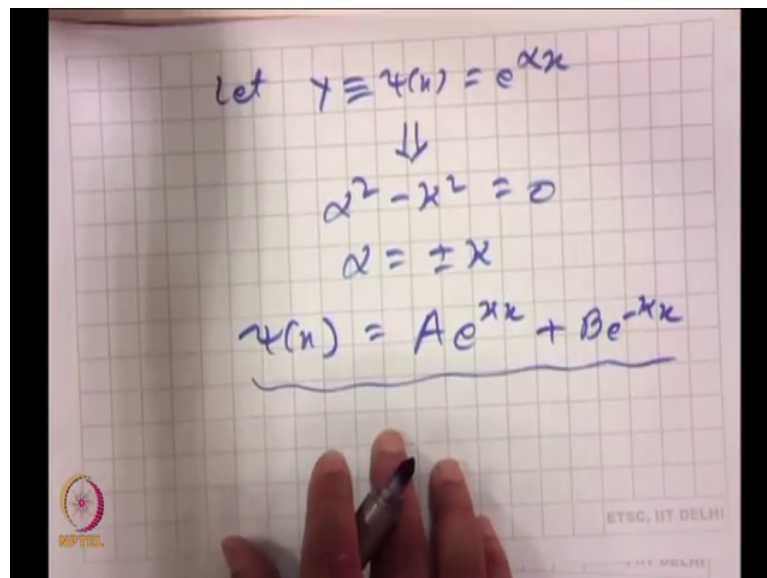 Let Y ≡ ψ(x) = e^{αx}
⇓
α² - κ² = 0
α = ± κ
ψ(x) = A e^{κx} + B e^{-κx}
ETSC, IIT DELHI
NPTEL
IIT DELHI